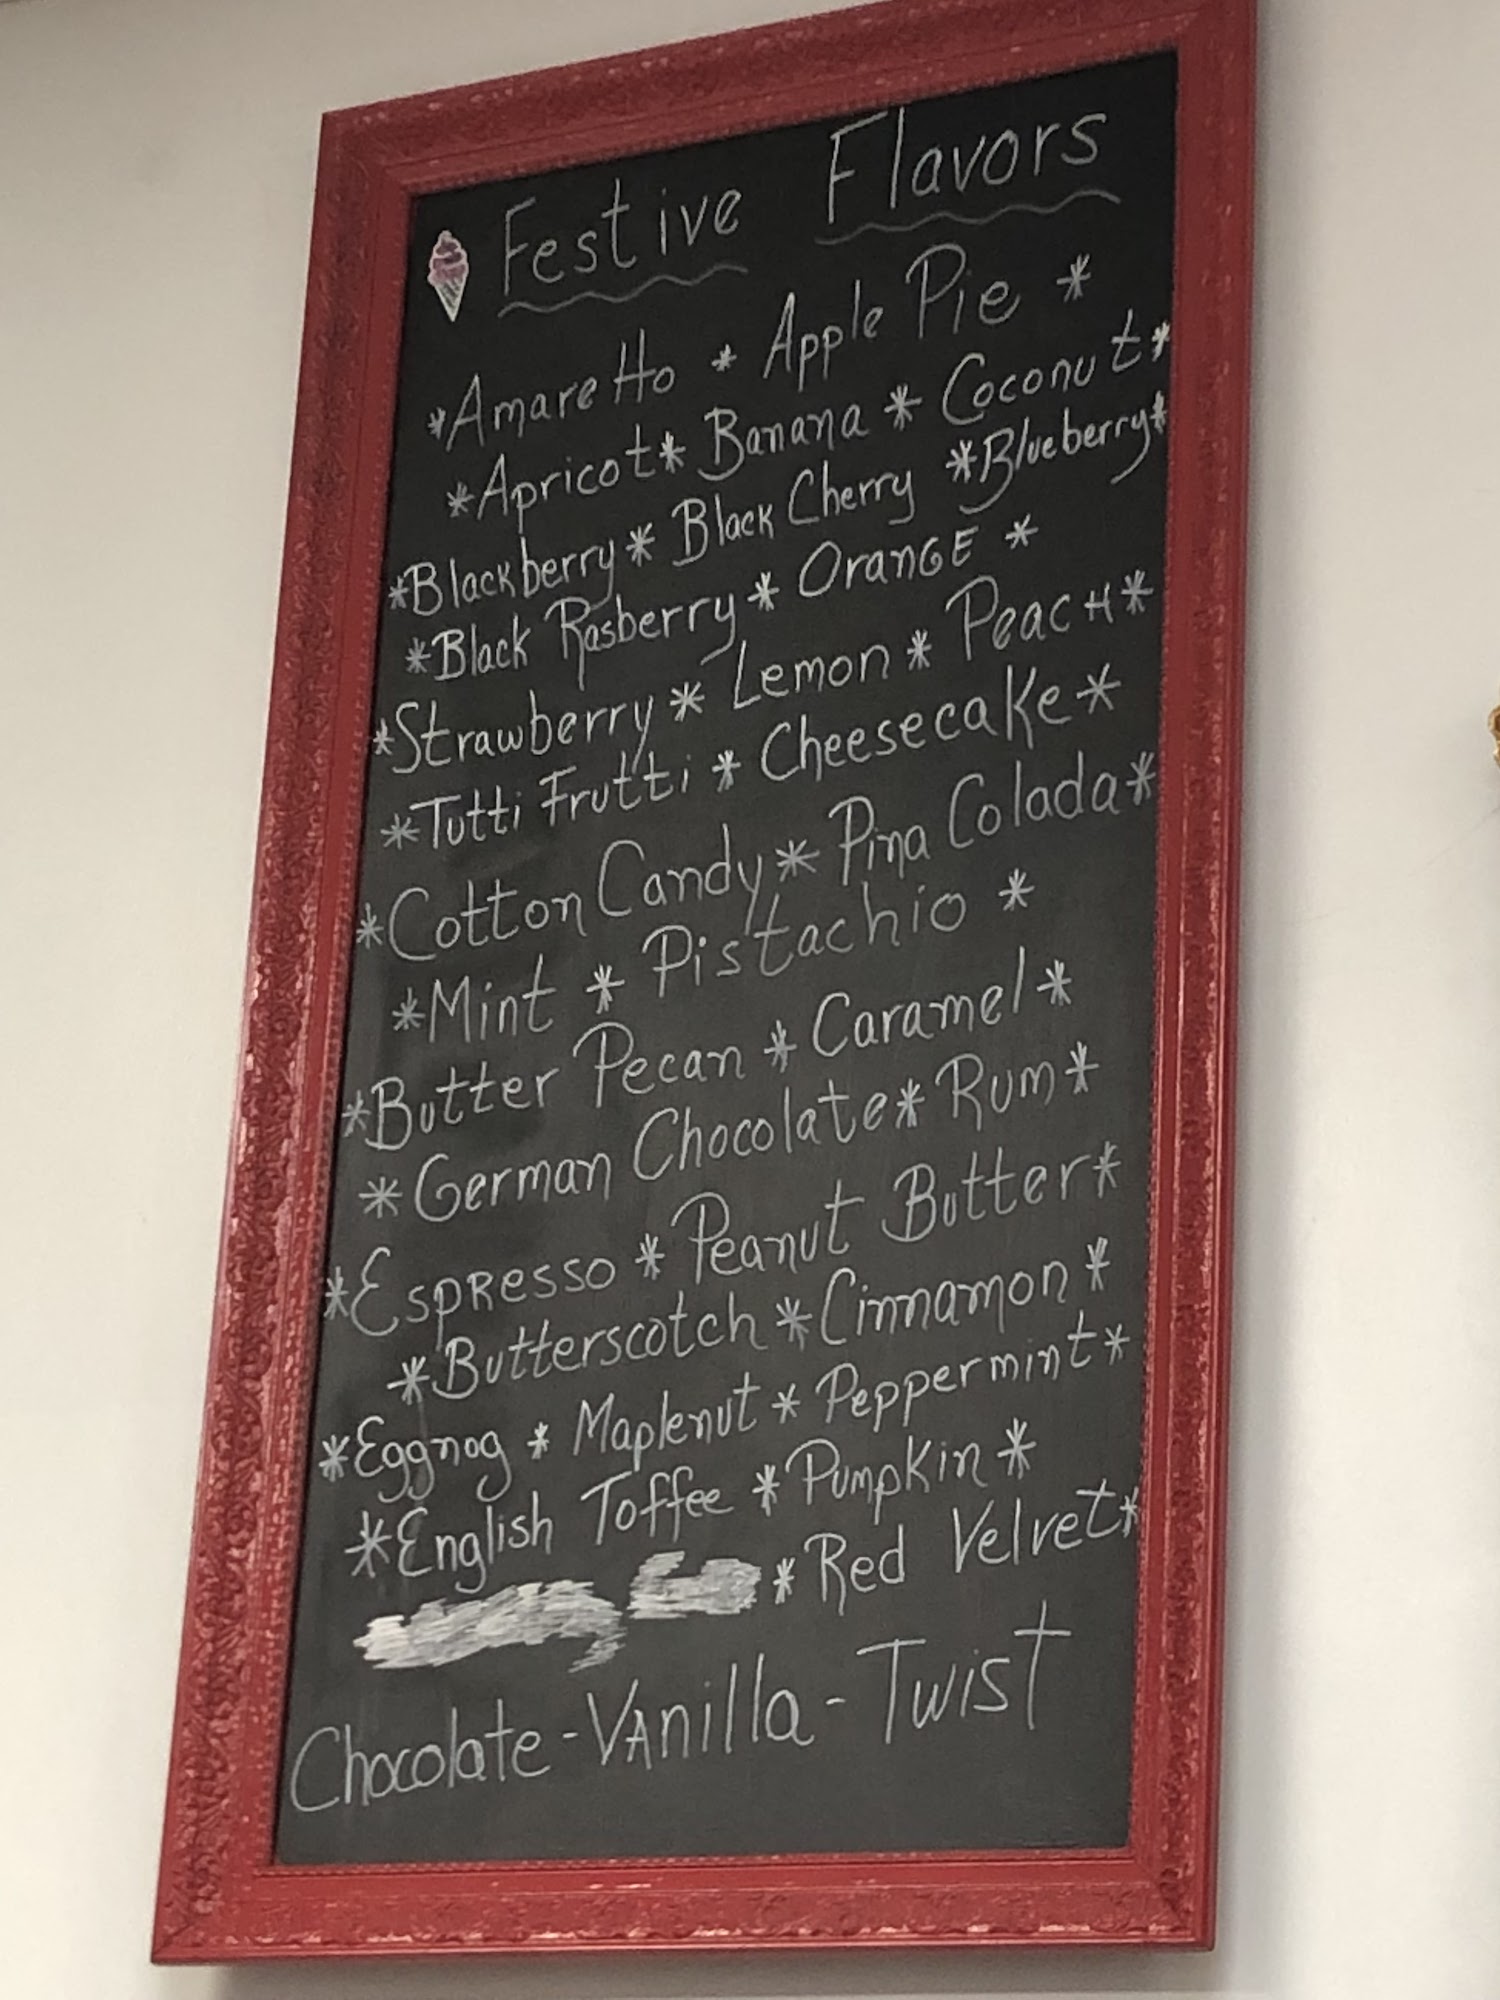 Festive Flavors
*Amaretto * Apple Pie *
*Apricot * Banana * Coconut *
*Blackberry * Black Cherry *Blueberry*
*Black Rasberry * Orange *
*Strawberry * Lemon * Peach *
*Tutti Frutti * Cheesecake *
*Cotton Candy * Pina Colada *
*Mint * Pistachio *
*Butter Pecan * Caramel *
*German Chocolate * Rum *
*Espresso * Peanut Butter *
*Butterscotch * Cinnamon *
*Eggnog * Maplenut * Peppermint *
*English Toffee * Pumpkin *
*Red Velvet *
Chocolate - Vanilla - Twist